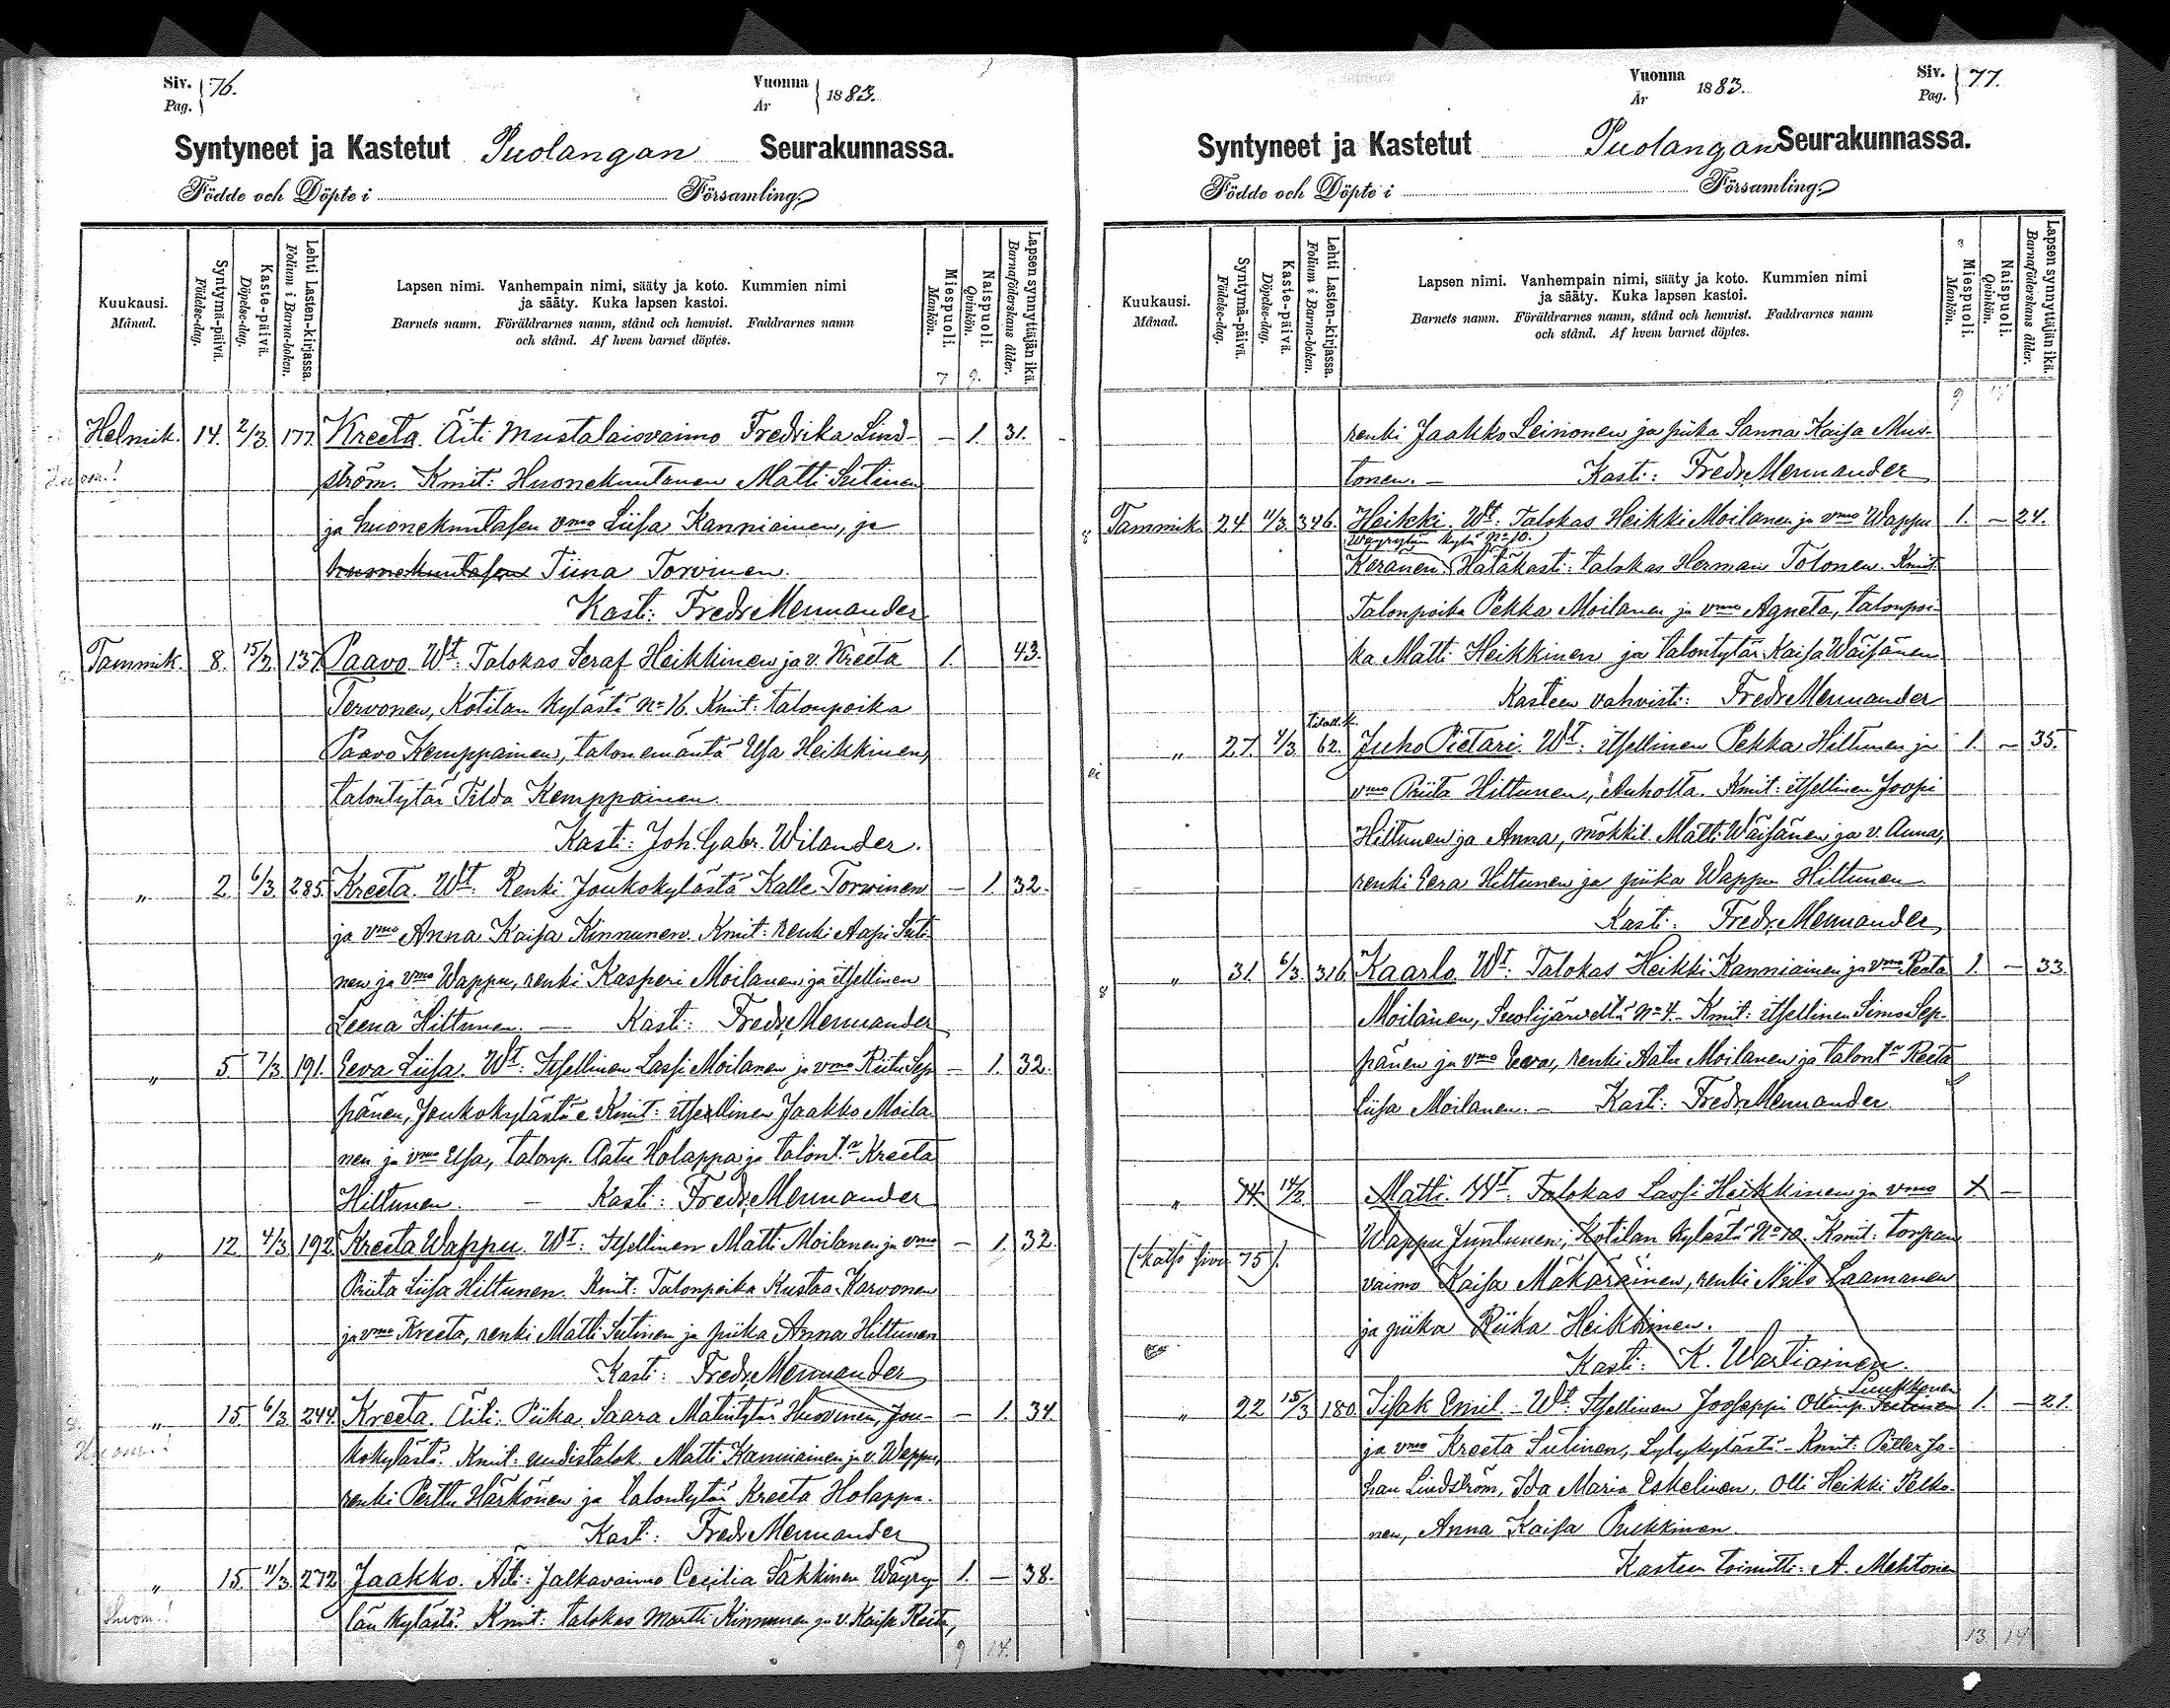 Siv. 76.
Pag.
Vuonna 1883.
År
Syntyneet ja Kastetut Puolangan Seurakunnassa.
Födde och Döpte i Församling.
Kuukausi.
Månad.
Syntymä-päivä.
Födelse-dag.
Kaste-päivä.
Döpelse-dag.
Lehti Lasten-kirjassa.
Folium i Barna-boken.
Lapsen nimi. Vanhempain nimi, sääty ja koto. Kummien nimi
ja sääty. Kuka lapsen kastoi.
Barnets namn. Föräldrarnes namn, stånd och hemvist. Faddrarnes namn
och stånd. Af hvem barnet döptes.
Miespuoli.
Mankön.
Naispuoli.
Quinkön.
Lapsen synnyttäjän ikä.
Barnaföderskans ålder.
7 9.
Helmik. 14. 2/3. 177. Kreeta. Äiti mustalaisvaimo Fredrika Lind- – 1. 31.
ström. Kmit: Huonekuntanen Matti Sutinen
ja huonekuntasen vmo Liisa Kanniainen, ja
huonekuntasen Tiina Torvinen.
Kasti: Fredr. Mennander
Tammik. 8. 15/2. 137. Paavo. Wt: Talokas Seraf Heikkinen ja v. Kreeta 1. 43.
Tervonen, Kotilan kylästä No 16. Kmit: talonpoika
Paavo Kemppainen, talonemäntä Elsa Heikkinen,
talontytär Tilda Kemppainen.
Kasti: Joh. Gabr. Wilander.
" 2. 6/3. 285. Kreeta. Wt: Renki Joukokylästä Kalle Torvinen – 1. 32.
ja vmo Anna Kaisa Kinnunen. Kmit: renki Aapi Suti-
nen ja vmo Wappu, renki Kasperi Moilanen ja itsellinen
Leena Hiltunen. – Kasti: Fredr. Mennander
" 5. 7/3. 191. Eeva Liisa. Wt: Itsellinen Lassi Moilanen ja vmo Riitu Sep- – 1. 32.
pänen, Joukokylästä. Kmit: itsellinen Jaakko Moila-
nen ja vmo Elsa, talonp. Aatu Holappa ja talont:r Kreeta
Hiltunen. – Kasti: Fredr. Mennander
" 12. 4/3. 192. Kreeta Wappu. Wt: Itsellinen Matti Moilanen ja vmo – 1. 32.
Priita Liisa Hiltunen. Kmit: Talonpoika Kustaa Karvonen
ja vmo Kreeta, renki Matti Sutinen ja piika Anna Hiltunen
Kasti: Fredr. Mennander
" 15. 6/3. 244. Kreeta. Äiti: Piika Saara Matintytär Huovinen, Jou- – 1. 34.
kokylästä. Kmit: uudistalok. Matti Kanniainen ja v. Wappu,
renki Perttu Härkönen ja talontytär Kreeta Holappa.
Kasti: Fredr. Mennander
" 15. 11/3. 272. Jaakko. Äiti: Jalkavaimo Cecilia Säkkinen Wäyry- 1. – 38.
län kylästä. Kmit: talokas Martti Kinnunen ja v. Kaisa Reeta,
9 14.
Vuonna 1883.
År
Siv. 77.
Pag.
Syntyneet ja Kastetut Puolangan Seurakunnassa.
Födde och Döpte i Församling.
Kuukausi.
Månad.
Syntymä-päivä.
Födelse-dag.
Kaste-päivä.
Döpelse-dag.
Lehti Lasten-kirjassa.
Folium i Barna-boken.
Lapsen nimi. Vanhempain nimi, sääty ja koto. Kummien nimi
ja sääty. Kuka lapsen kastoi.
Barnets namn. Föräldrarnes namn, stånd och hemvist. Faddrarnes namn
och stånd. Af hvem barnet döptes.
Miespuoli.
Mankön.
Naispuoli.
Quinkön.
Lapsen synnyttäjän ikä.
Barnaföderskans ålder.
renki Jaakko Leinonen ja piika Sanna Kaisa Mus-
tonen. – Kasti: Fredr. Mennander
Tammik. 24. 11/3. 346. Heikki. Wt: Talokas Heikki Moilanen ja vmo Wappu 1. – 24.
Wäyrylän kylä No 10.
Keränen. Hätäkasti: talokas Herman Tolonen. Kmit:
Talonpoika Pekka Moilanen ja vmo Agneta, talonpoi-
ka Matti Heikkinen ja talontytär Kaisa Wäisänen
Kasteen vahvisti: Fredr. Mennander
" 27. 4/3. 62. Juho Pietari. Wt: itsellinen Pekka Hiltunen ja 1. – 35.
vmo Priita Hiltunen, Auholta. Kmit: itsellinen Joopi
Hiltunen ja Anna, mökkil. Matti Wäisänen ja v. Anna,
renki Eera Hiltunen ja piika Wappu Hiltunen
Kasti: Fredr. Mennander
" 31. 6/3. 316. Kaarlo. Wt: Talokas Heikki Kanniainen ja vmo Reeta 1. – 33.
Moilanen, Suolijärveltä No 4. Kmit: itsellinen Simo Sep-
pänen ja vmo Eeva, renki Aatu Moilanen ja talont:r Reeta
Liisa Moilanen. – Kasti: Fredr. Mennander.
" 14. 14/2. Matti. Wt: Talokas Lassi Heikkinen ja vmo 1 –
Wappu Juntunen, Kotilan kylästä No 10. Kmit: torpan
(Katso sivu 75).
vaimo Kaisa Mäkäräinen, renki Niilo Laamanen
ja piika Riika Heikkinen.
Kasti: K. Wartiainen.
" 22. 15/3. 180. Iisak Emil. Wt: Itsellinen Jooseppi Ollinp. 1. – 21.
Luukkonen
ja vmo Kreeta Sutinen, Lylykylästä. Kmit: Petter Jo-
han Lindström, Ida Maria Eskelinen, Olli Heikki Pelko-
nen, Anna Kaisa Pulkkinen.
Kasteen toimitti: A. Mehtonen
13 14